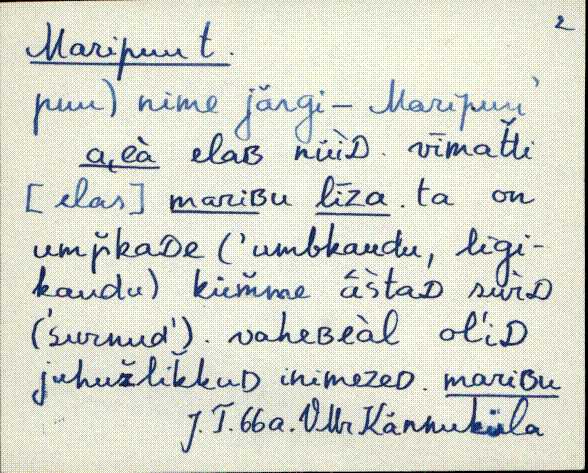 2
Maripuu t.
puu) nime järgi – Maripuu'
a,eà elaʙ nüìᴅ. vīmat̆li
[elas] mariʙu līza. ta on
ump̆kaᴅe ('umbkaudu, ligi-
kaudu) kium̆me ā̆staᴅ sùrᴅ
('surnud'). vaheʙeàl ol'iᴅ
juhuz̆lik̆kuᴅ inimezeᴅ. mariʙu
J.T. 66a. VMr Kännuküla